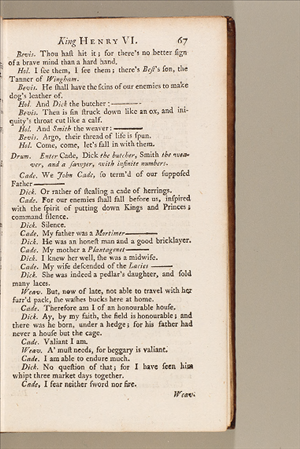 King HENRY VI. 67
Bevis. Thou haſt hit it; for there's no better ſign
of a brave mind than a hard hand.
Hol. I ſee them, I ſee them; there's Beſt's ſon, the
Tanner of Wingham.
Bevis. He ſhall have the ſcins of our enemies to make
dog's leather of.
Hol. And Dick the butcher: ———
Bevis. Then is ſin ſtruck down like an ox, and ini-
quity's throat cut like a calf.
Hol. And Smith the weaver: ———
Bevis. Argo, their thread of life is ſpun.
Hol. Come, come, let's fall in with them.
Drum. Enter Cade, Dick the butcher, Smith the wea-
ver, and a ſawyer, with infinite numbers.
Cade. We John Cade, ſo term'd of our ſuppoſed
Father ———
Dick. Or rather of ſtealing a cade of herrings.
Cade. For our enemies ſhall fall before us, inſpired
with the ſpirit of putting down Kings and Princes;
command ſilence.
Dick. Silence.
Cade. My father was a Mortimer ———
Dick. He was an honeſt man and a good bricklayer.
Cade. My mother a Plantagenet ———
Dick. I knew her well, ſhe was a midwife.
Cade. My wife deſcended of the Lacies ———
Dick. She was indeed a pedlar's daughter, and ſold
many laces.
Weav. But, now of late, not able to travel with her
furr'd pack, ſhe waſhes bucks here at home.
Cade. Therefore am I of an honourable houſe.
Dick. Ay, by my faith, the field is honourable; and
there was he born, under a hedge; for his father had
never a houſe but the cage.
Cade. Valiant I am.
Weav. A' muſt needs, for beggary is valiant.
Cade. I am able to endure much.
Dick. No queſtion of that; for I have ſeen him
whipt three market days together.
Cade. I fear neither ſword nor fire.
Weav.